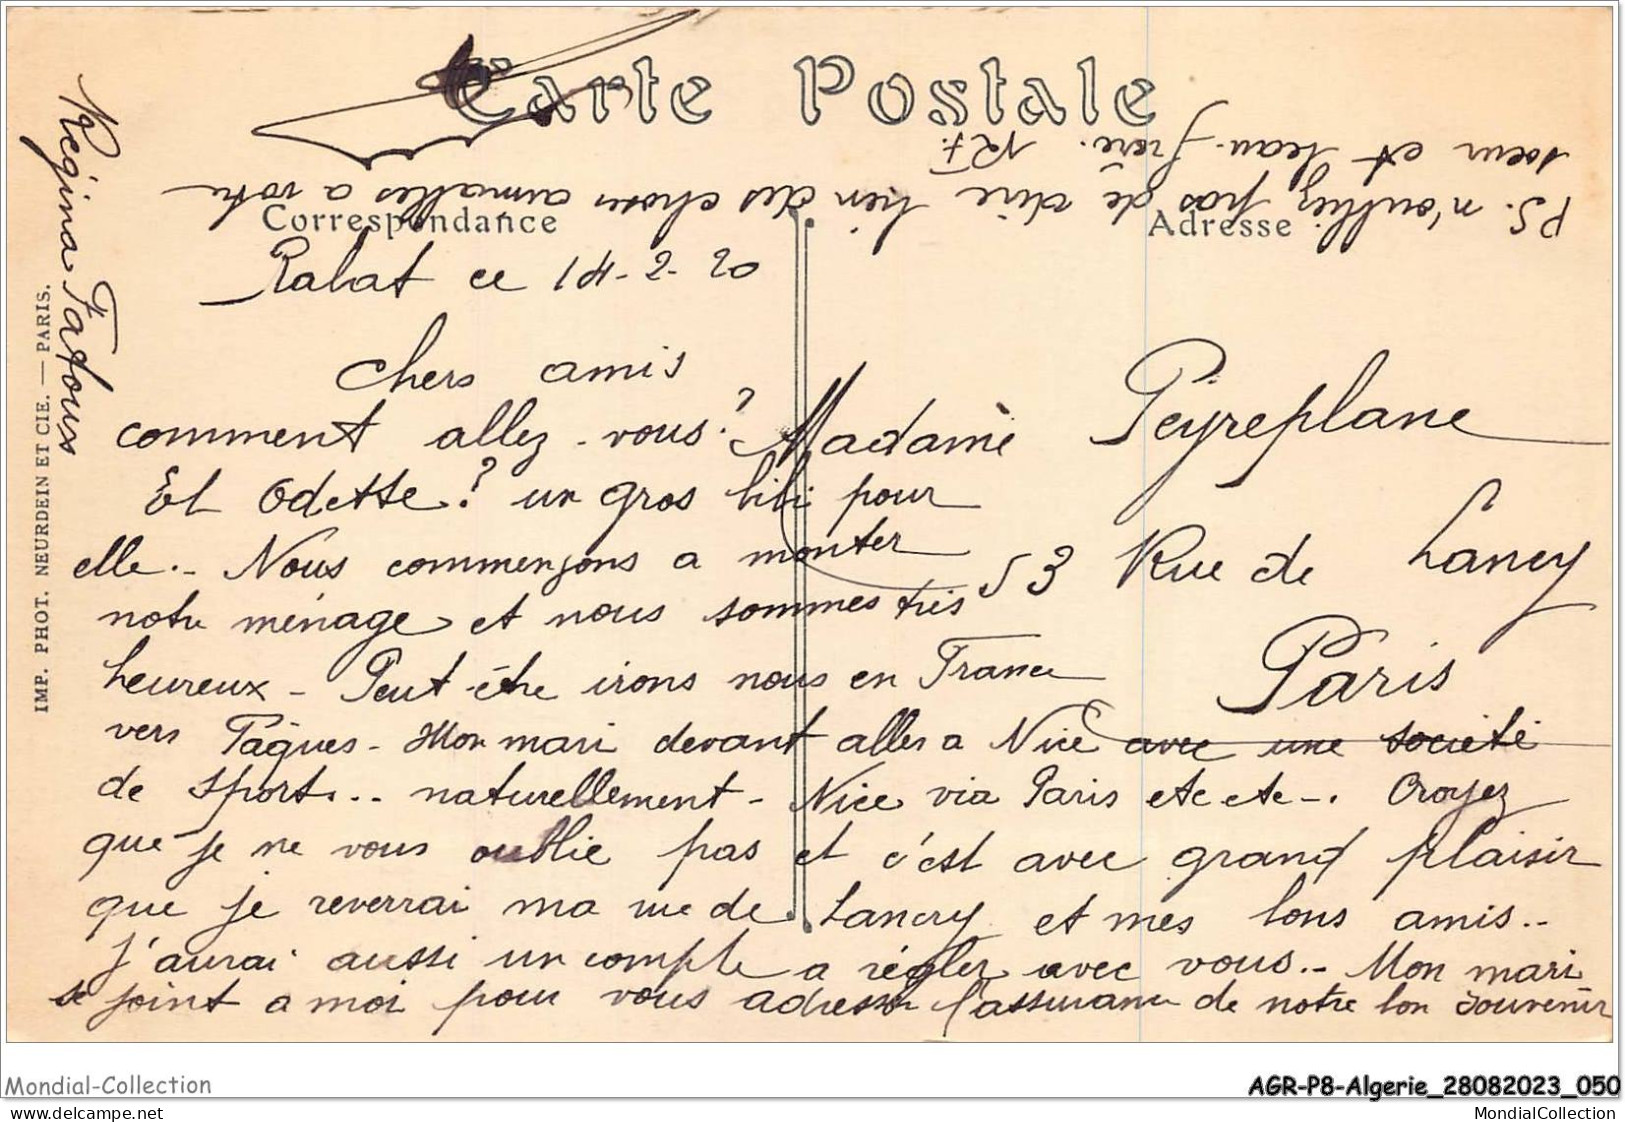 Carte Postale
Correspondance
Adresse
Rabat ce 14-2-20
Chers amis
comment allez-vous?
Et Odette? un gros bibi pour
elle.- Nous commençons a monter
notre ménage et nous sommes très
heureux - Peut-être irons nous en France
vers Pâques - Mon mari devant aller a Nice avec une société
de sport... naturellement - Nice via Paris etc etc-. Croyez
que je ne vous oublie pas et c'est avec grand plaisir
que je reverrai ma rue de Lancry et mes bons amis..
J'aurai aussi un compte a régler avec vous.. Mon mari
se joint a moi pour vous adresser l'assurance de notre bon souvenir
Régina Fatoux
PS. n'oubliez pas de dire bien des choses aimables a votre
soeur et beau-frère. RF
Madame Peyreplane
53 Rue de Lancry
Paris
IMP. PHOT. NEURDEIN ET CIE. — PARIS.
Mondial-Collection
AGR-P8-Algerie_28082023_050
www.delcampe.net
MondialCollection